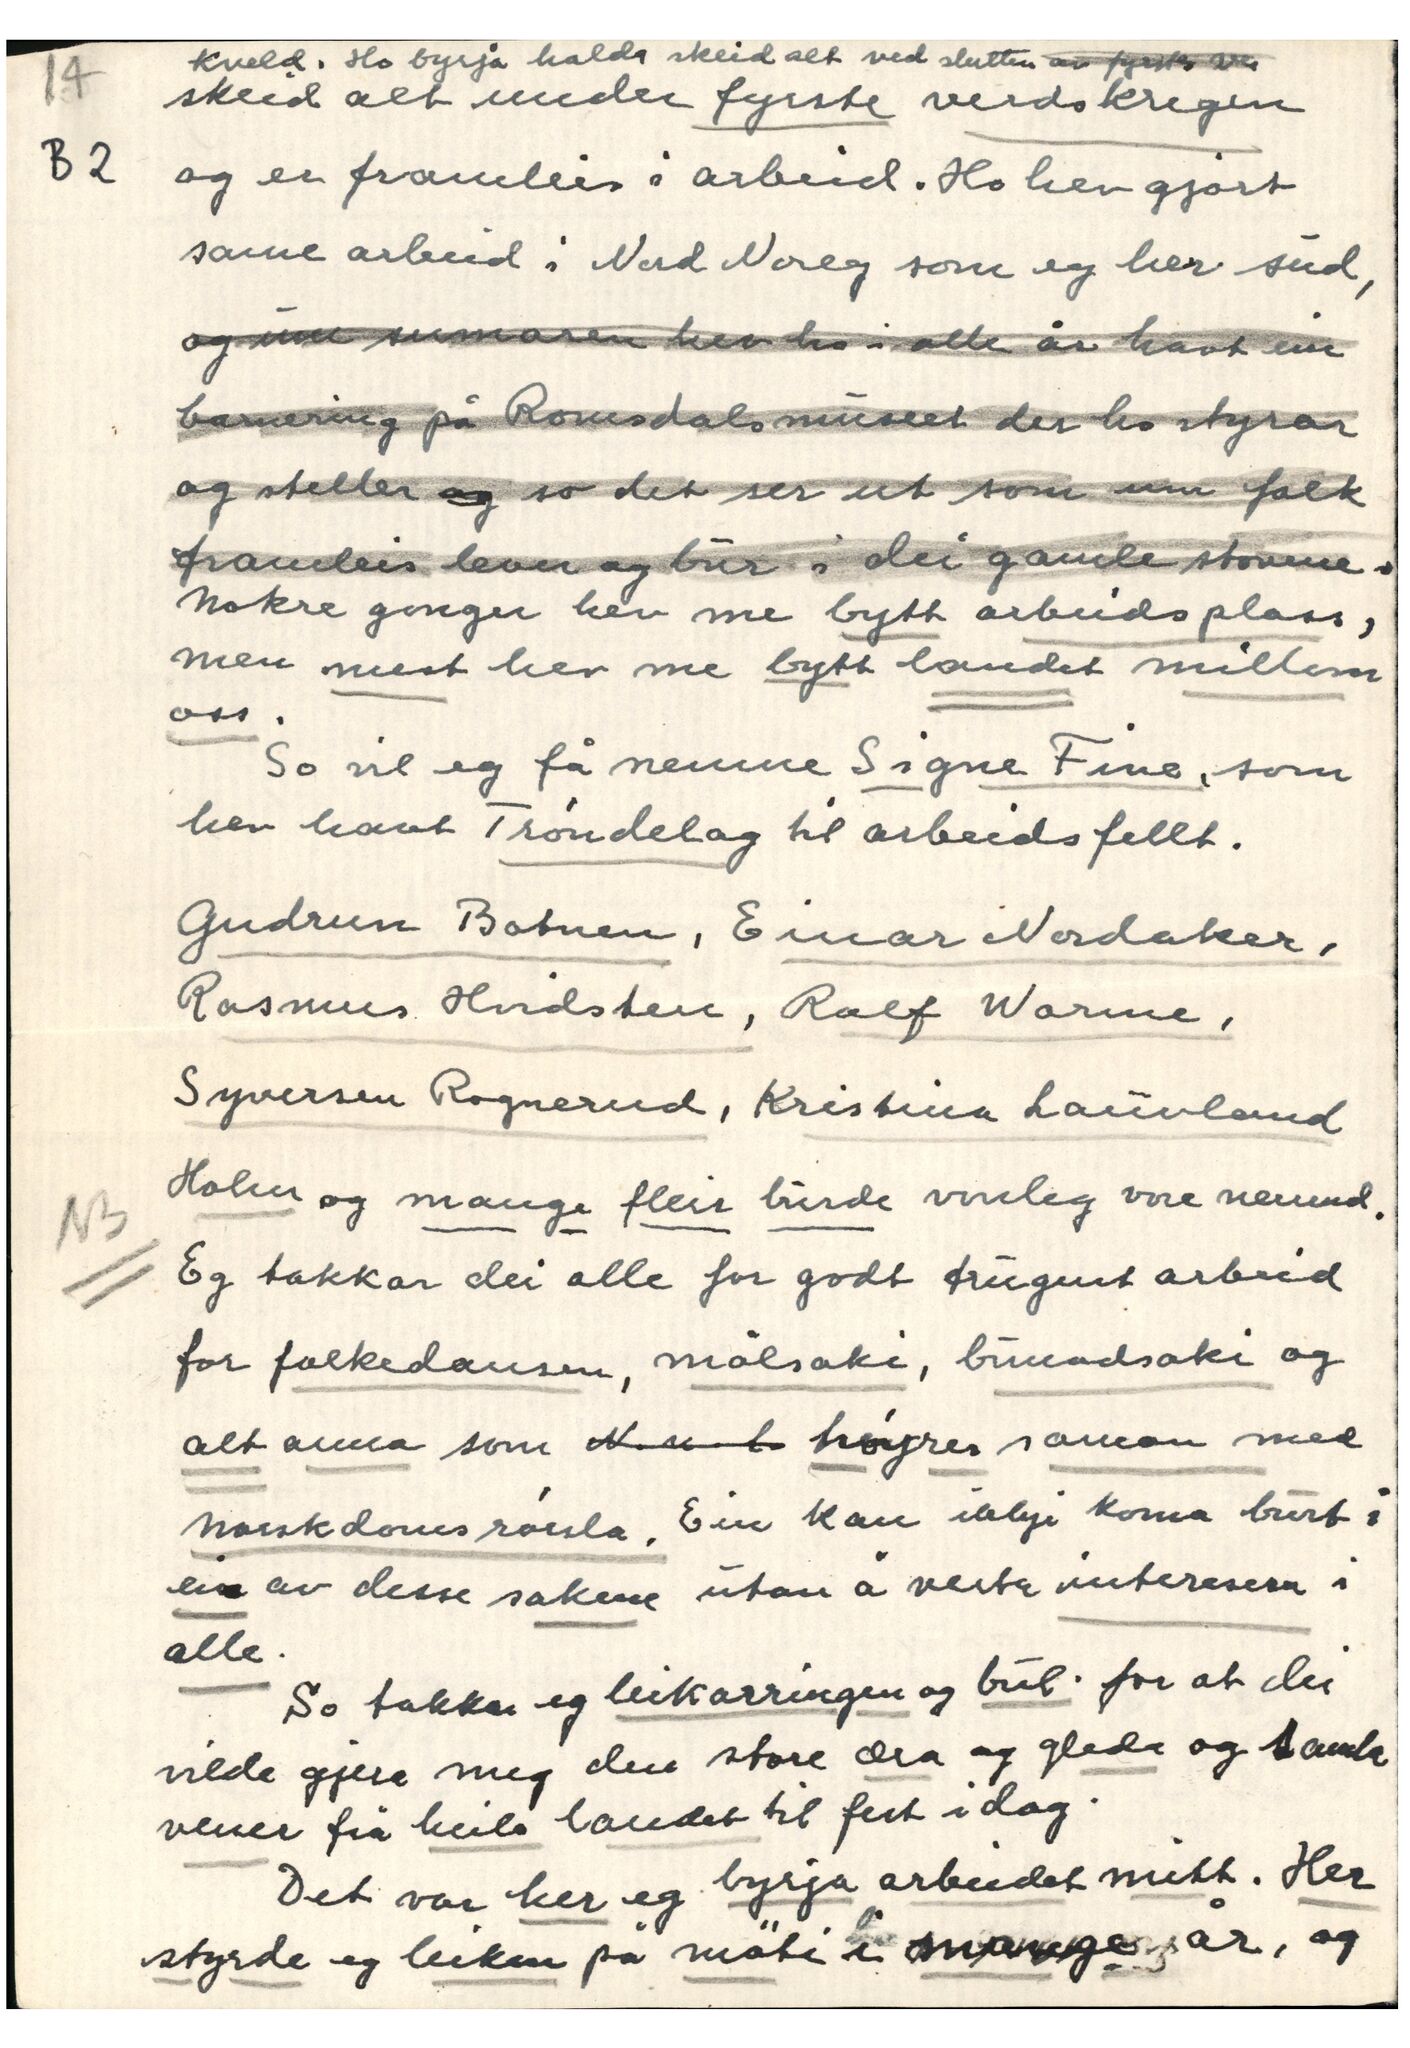 14
kveld. Ho byrja halda skeid alt ved slutten av fyrste ver
skeid alt under fyrste verdskrigen
B2
og er framleis i arbeid. Ho hev gjort
same arbeid i Nord Noreg som eg her sud,
og um sumaren hev ho i alle år havt ein
barnering på Romsdalsmuseet der ho styrar
og steller og so det ser ut som um folk
framleis lever og bur i dei gamle stovene.
Nokre gonger hev me bytt arbeidsplass,
men mest hev me bytt landet millom
oss.
So vil eg få nemne Signe Fine, som
hev havt Tróndelag til arbeidsfellt.
Gudrun Botnen, Einar Nordaker,
Rasmus Hvidsten, Ralf Warme,
Syversen Rognerud, Kristina Lauvland
Holm og mange fleir burde venleg vore nemnd.
NB
Eg takkar dei alle for godt trugent arbeid
for folkedansen, målsaki, bunadsaki og
alt anna som høyrer saman med
norskdomsrørsla. Ein kan ikkje koma burt i
ein av desse sakene utan å verte interesera i
alle.
So takkar eg leikarringen og bul. for at dei
vilde gjera meg den store æra og gleda og samla
vener frå heile landet til fest idag.
Det var her eg byrja arbeidet mitt. Her
styrde eg leiken på möti i mange år, og